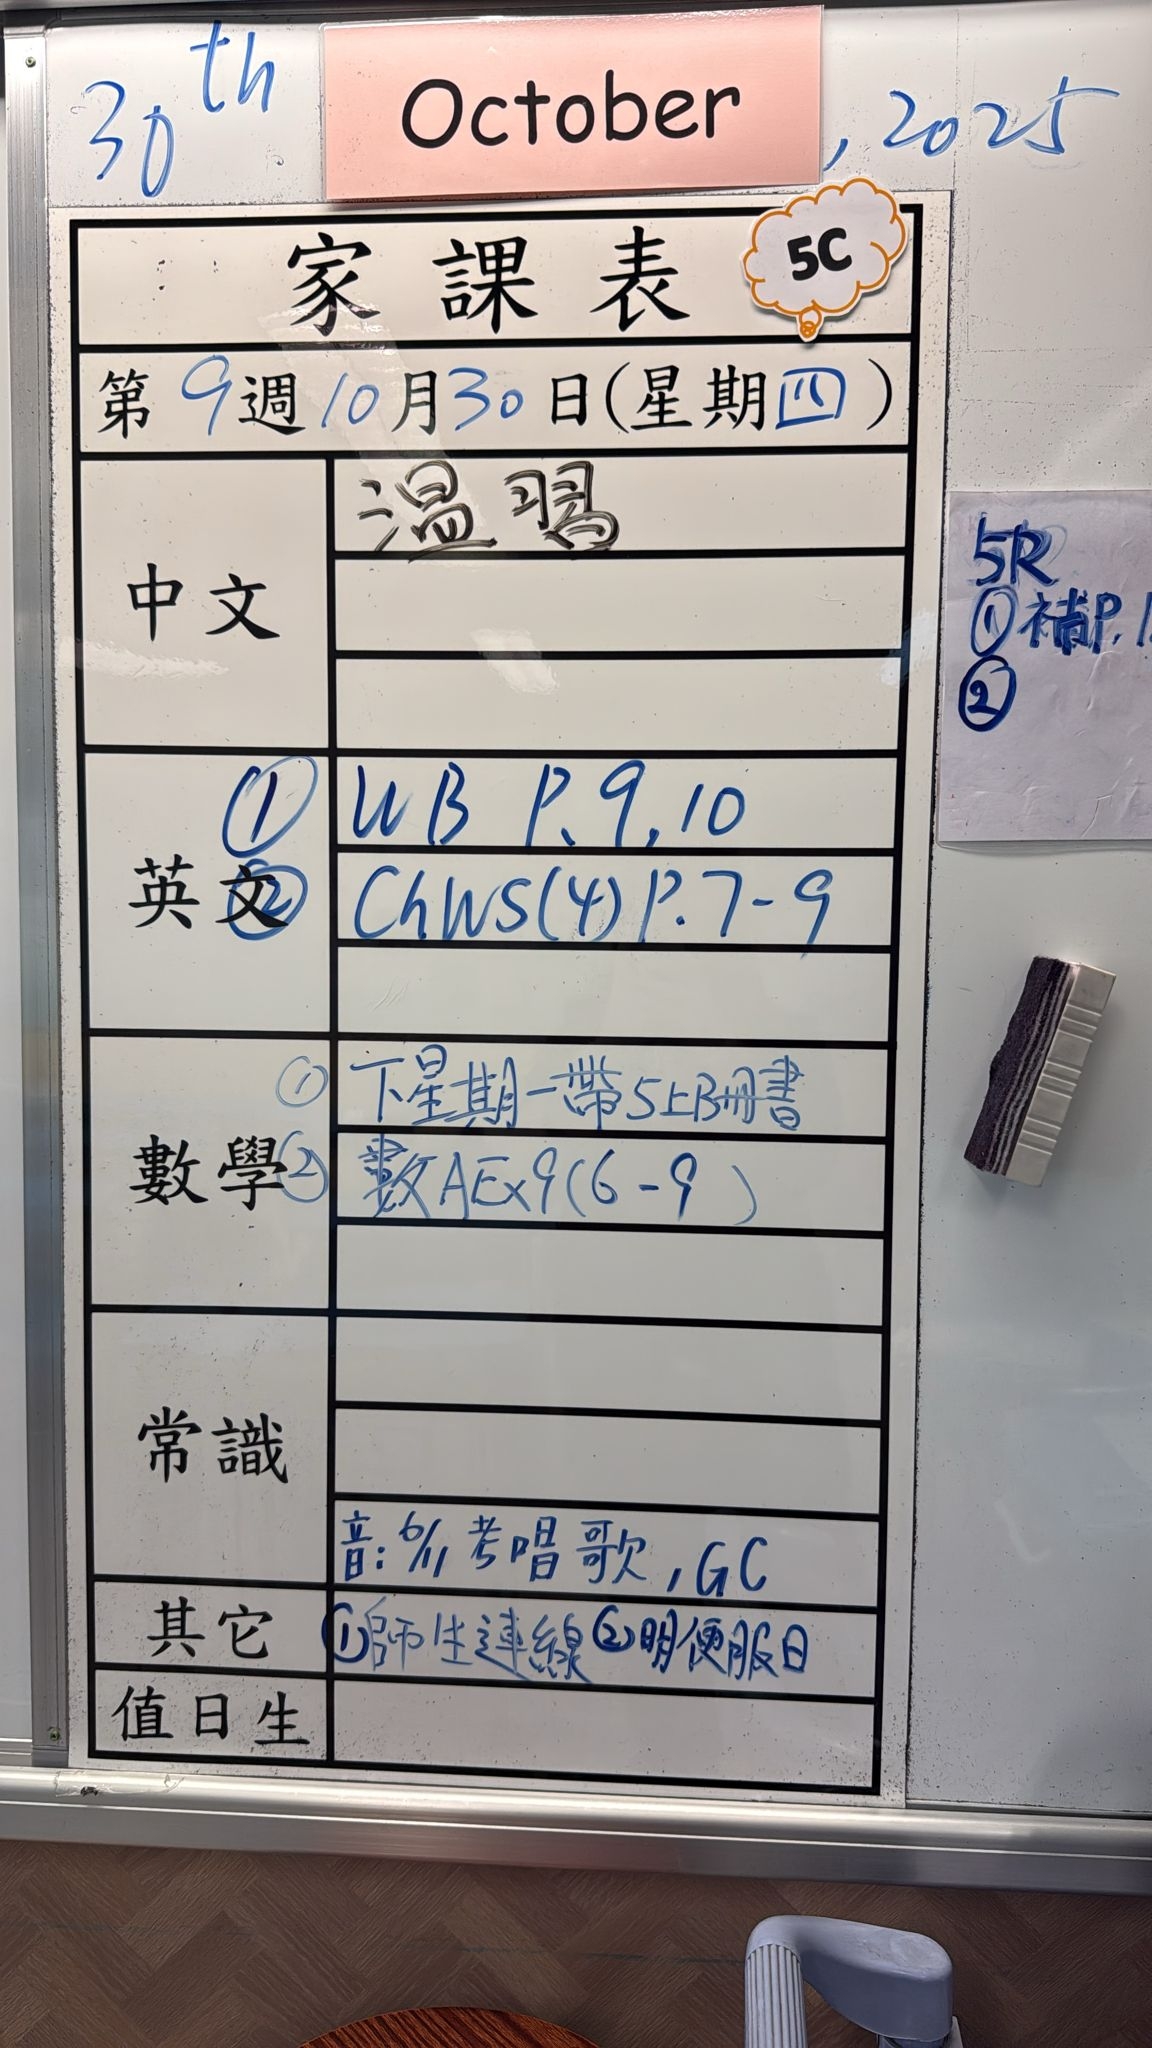 30th October, 2025
家課表 5C
第9週10月30日(星期四)
中文
温習
英文
① WB P.9,10
② ChWS(4) P.7-9
數學
① 下星期一帶5上B冊書
② 數AEx9(6-9)
常識
音: 6/11考唱歌, GC
其它
①師生連線②明便服日
值日生
5R
①補P.
②